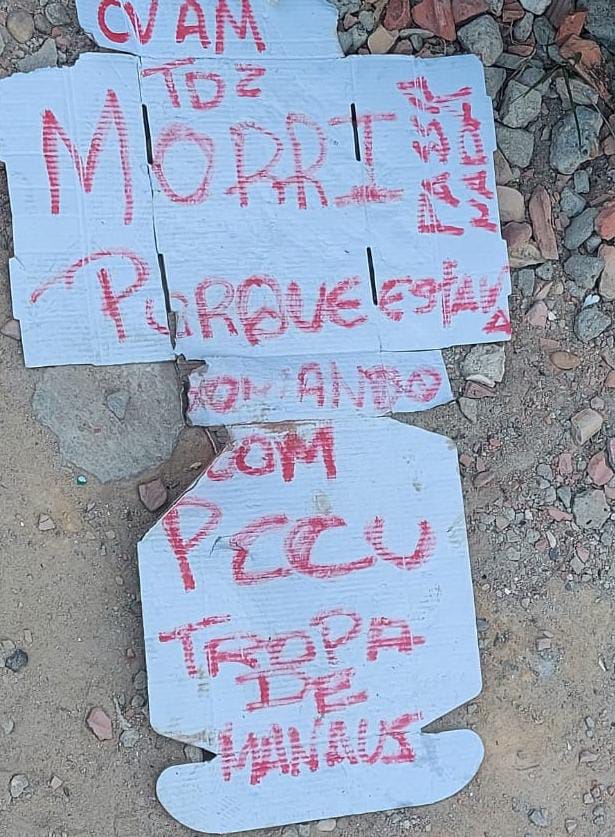 CVAM
TD2
MORRI
PORQUE ESTAVA
COM
PCCU
TROPA
DE
MANAUS